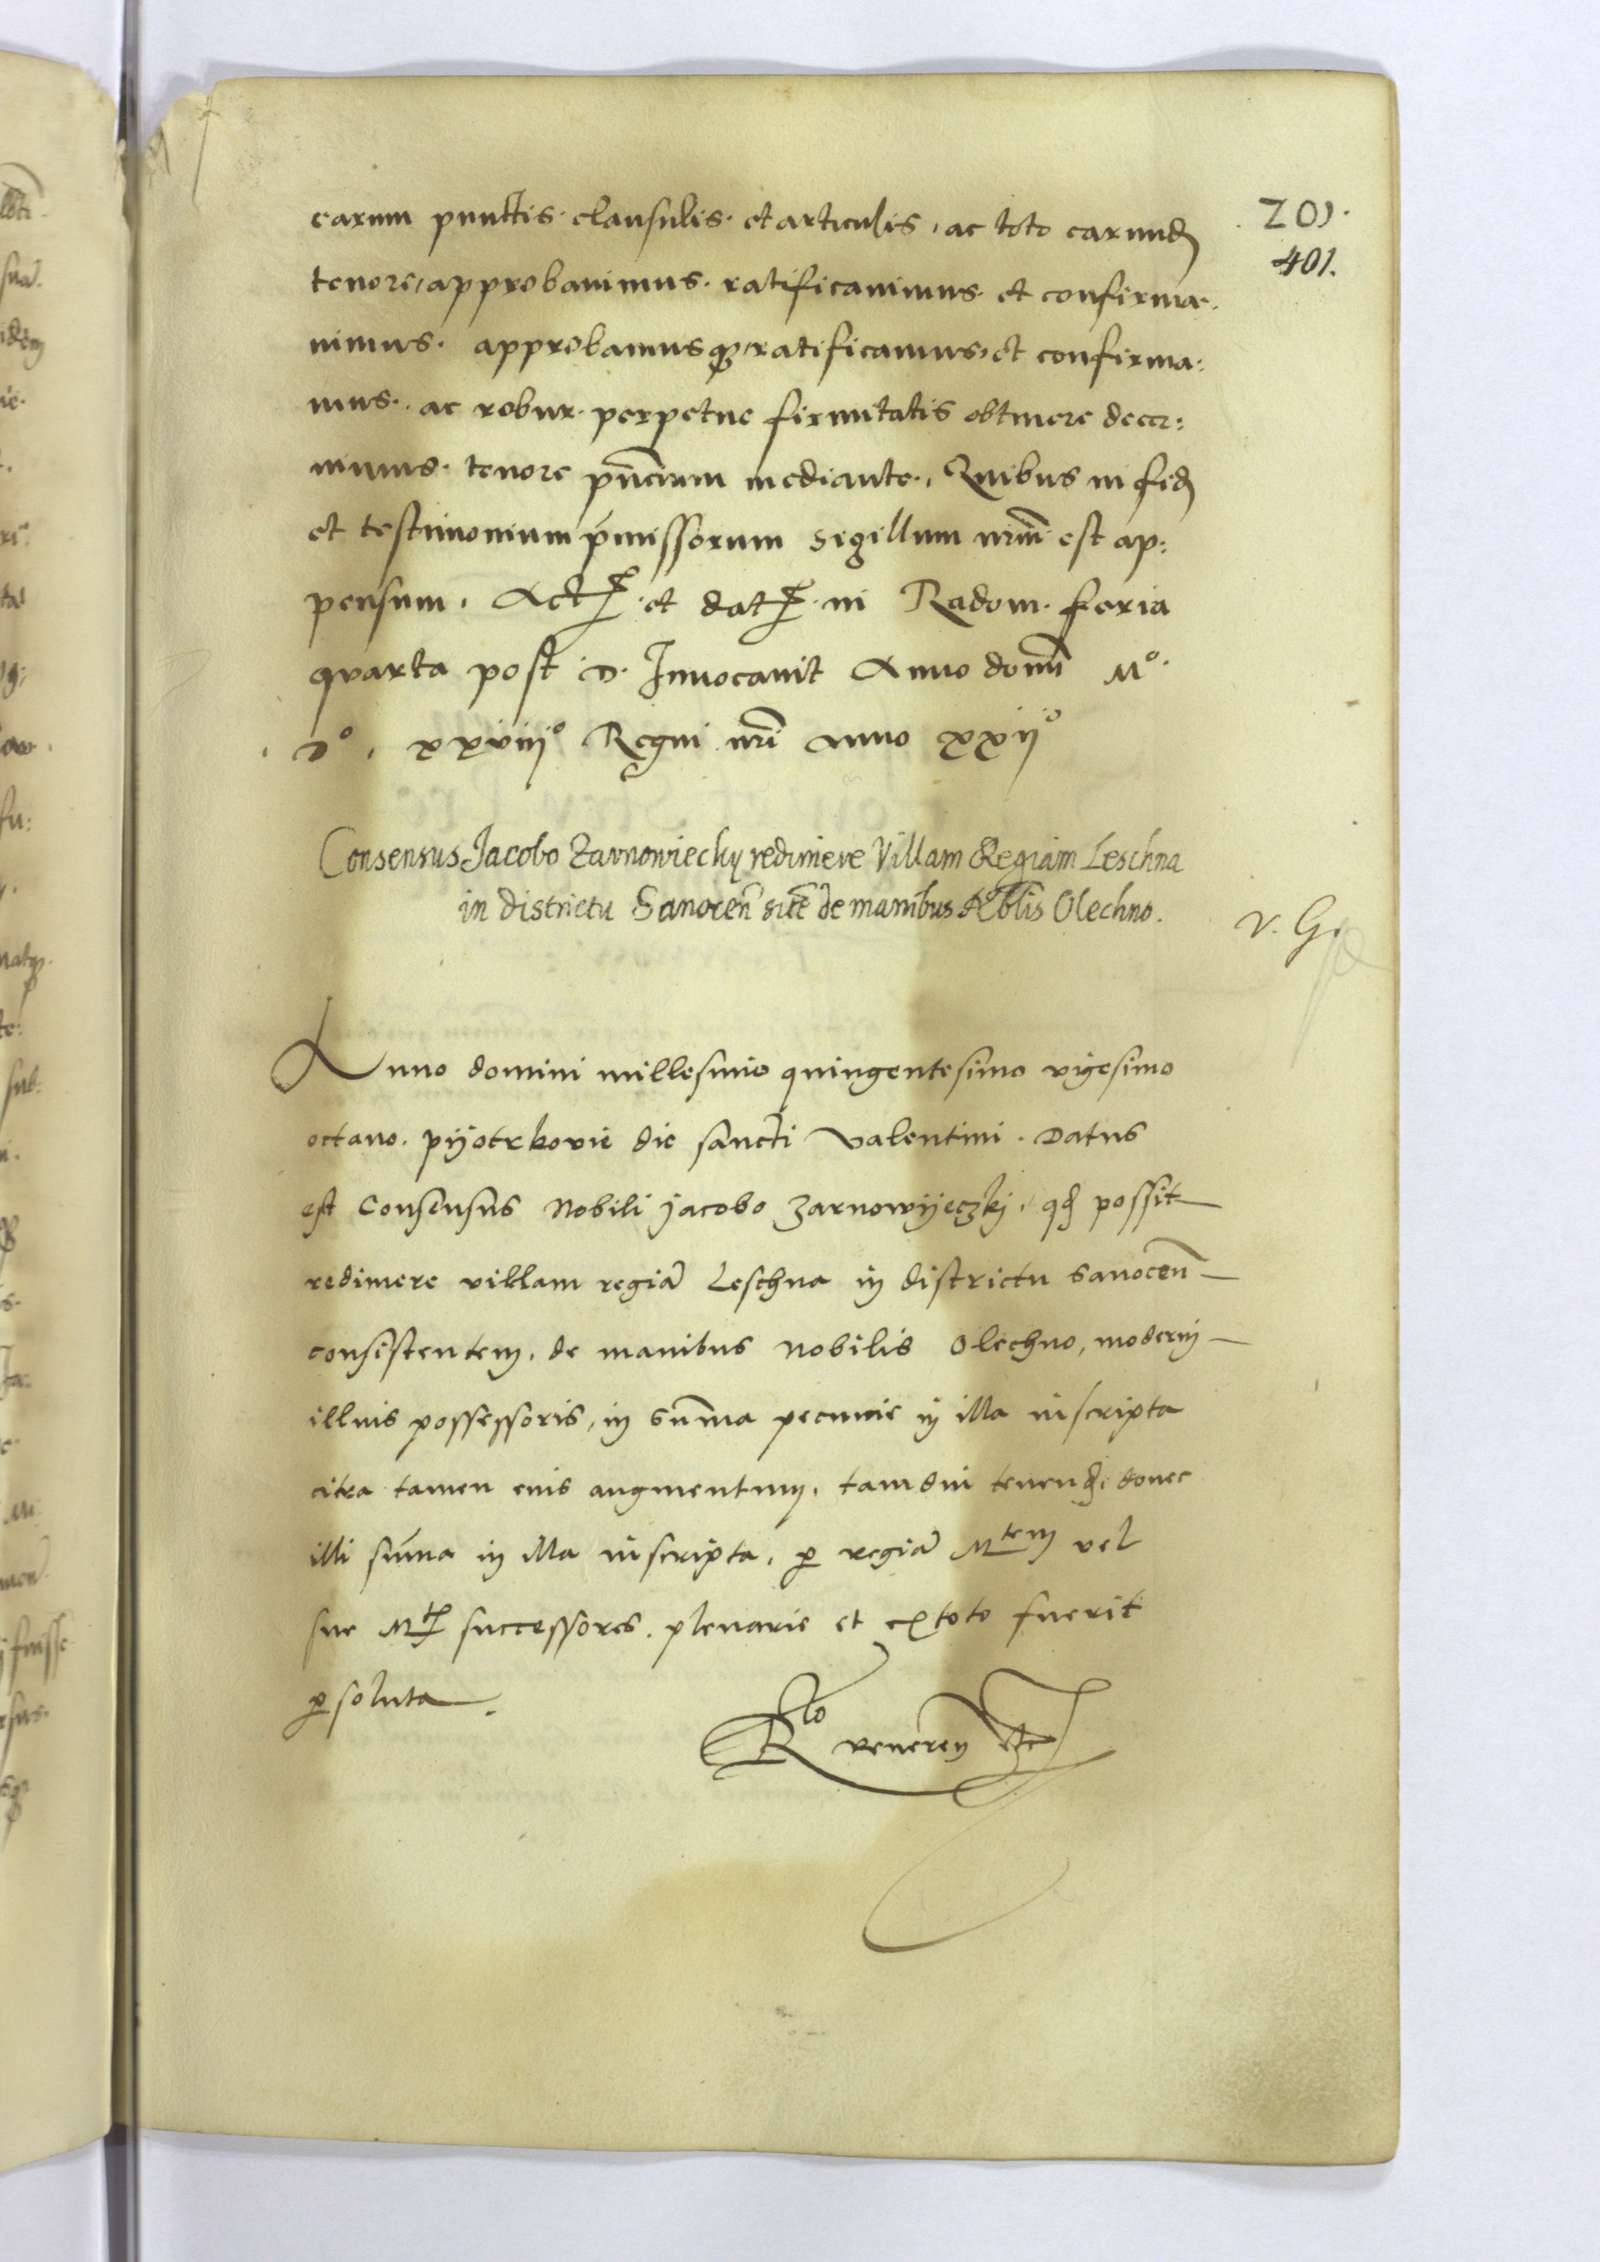 201.
401.
earum punctis clausulis et articulis, ac toto earundẽ
tenore, approbavimus ratificavimus et confirma-
vimus. approbamusq₃, ratificamus, et confirma:
mus. ac robur perpetue firmitatis obtinere decer:
nimus. tenore pñcium mediante. Quibus in fidẽ
et testimonium p̃missorum sigillum nrũm est ap:
pensum. Act̃ et dat̃ in Radom feria
quarta post D. Invocavit Anno domĩ Mº
Dº. xxviijº Regni nrĩ Anno xxijº
Consensus Jacobo Zarnowiecky redimere Villam Regiam Leschna
in districtu Sanoceñ sitẽ de manibus Nobilis Olechno.
V. G.
Anno domini millesimo quingentesimo vigesimo
octavo. pyotrkovie die sancti Valentini. Datus
est Consensus Nobili Jacobo Zarnowyeczkj. qd possit
redimere villam regiã Leschna in districtu Sanoceñ
consistentem. de manibus Nobilis Olechno, moderni
illius possessoris, in sum̃a pecunie in illa inscripta
citra tamen eius augmentum, tamdiu tenend. donec
illi sum̃a in illa inscripta, p regiã Mtem vel
sue Mtis successores. plenarie et ex toto fuerit
p soluta.
Rlo veneren etc